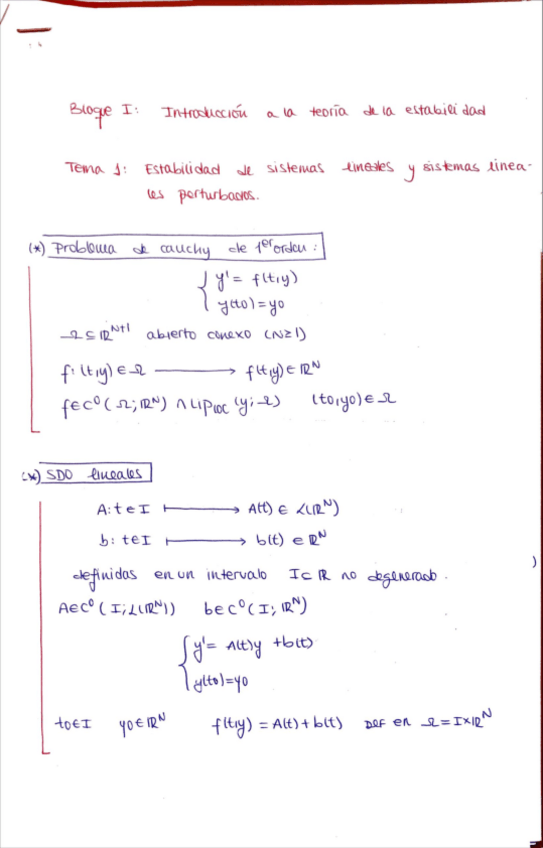 Bloque I: Introducción a la teoría de la estabilidad
Tema 1: Estabilidad de sistemas lineales y sistemas linea-
les perturbados.
(*) Problema de cauchy de 1er orden:
{ y' = f(t,y)
y(t0)=y0
Ω ⊆ ℝ^{N+1} abierto conexo (N≥1)
f: (t,y) ∈ Ω ⟶ f(t,y) ∈ ℝ^N
f∈C^0(Ω; ℝ^N) ∩ Lip_loc (y; Ω) (t0,y0) ∈ Ω
(*) SDO lineales
A: t ∈ I ⟼ A(t) ∈ L(ℝ^N)
b: t∈I ⟼ b(t) ∈ ℝ^N
definidas en un intervalo I⊂ℝ no degenerado.
A∈C^0(I; L(ℝ^N)) b∈C^0(I; ℝ^N)
{ y' = A(t)y + b(t)
y(t0)=y0
t0∈I y0∈ℝ^N f(t,y) = A(t)+b(t) DEF en Ω = I×ℝ^N